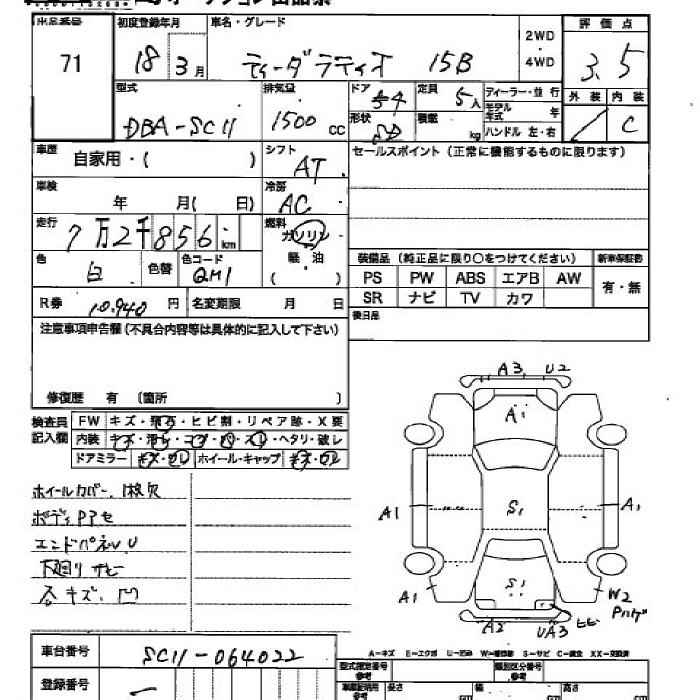 出品番号 71
初度登録年月 18年3月
車名・グレード ティーダラティオ 15B
2WD ・ 4WD
評価点 3.5
外装 内装 C
型式 DBA-SC11
排気量 1500 cc
ドア 4
定員 5人
ディーラー・並行
モデル年式 年
形状 SD
積載 kg
ハンドル 左・右
車歴 自家用・( )
シフト AT
セールスポイント (正常に機能するものに限ります)
車検 年 月( 日)
冷房 AC
走行 7万2千856 km
燃料 ガソリン 軽油 ( )
色 白 色替 色コード QM1
装備品 (純正品に限り○をつけてください) 新車保証書
PS PW ABS エアB AW 有・無
SR ナビ TV カワ
R券 10,940 円 名変期限 月 日
後日品
注意事項申告欄 (不具合内容等は具体的に記入して下さい)
修復歴 有 〔箇所 〕
検査員記入欄
FW キズ・飛石・ヒビ割・リペア跡・X要
内装 キズ・汚れ・コゲ・穴・スレ・ヘタリ・破レ
ドアミラー キズ・ワレ ホイール・キャップ キズ・ワレ
ホイールカバー 1枚欠
ボディPアセ
エンドパネルU
下廻りサビ
各キズ、凹
A3 U2
A1
A1 S1 A1
S1
A1 W2
Pハゲ
A2 UA3 ヒビ
車台番号 SC11-064022
A-キズ E-エクボ U-凹み W-補修跡 S-サビ C-腐食 XX-交換済
登録番号 —
型式指定番号 参考
類別区分番号 参考
長さ cm 幅 cm 高さ cm